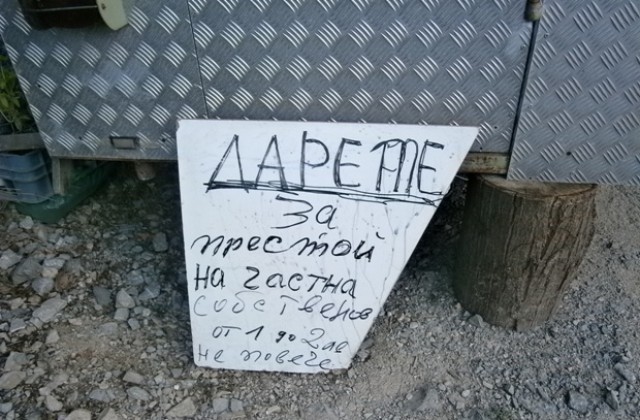 ДАРЕТЕ
за
престой
на частна
собственос
от 1 до 2 лв
не повече